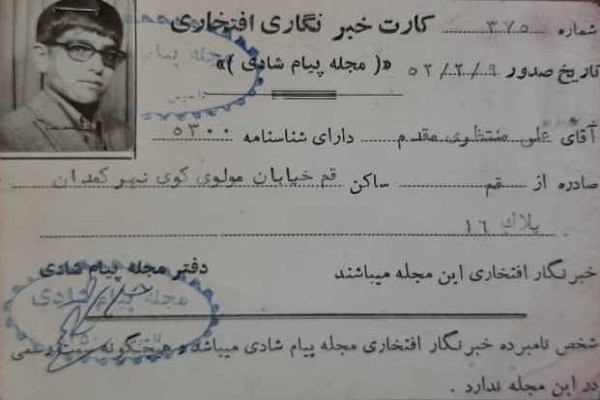 کارت خبر نگاری افتخاری
شماره ۳۷۵
«( مجله پیام شادی )»
تاریخ صدور ۵۲/۲/۹
آقای علی منتظری مقدم دارای شناسنامه ۵۳۰۰
صادره از قم ساکن قم خیابان مولوی کوی نهر کمدان
پلاک ۱۶
خبرنگار افتخاری این مجله میباشند
دفتر مجله پیام شادی
مجله پیام شادی
شخص نامبرده خبرنگار افتخاری مجله پیام شادی میباشد و هیچگونه سمت رسمی
در این مجله ندارد .